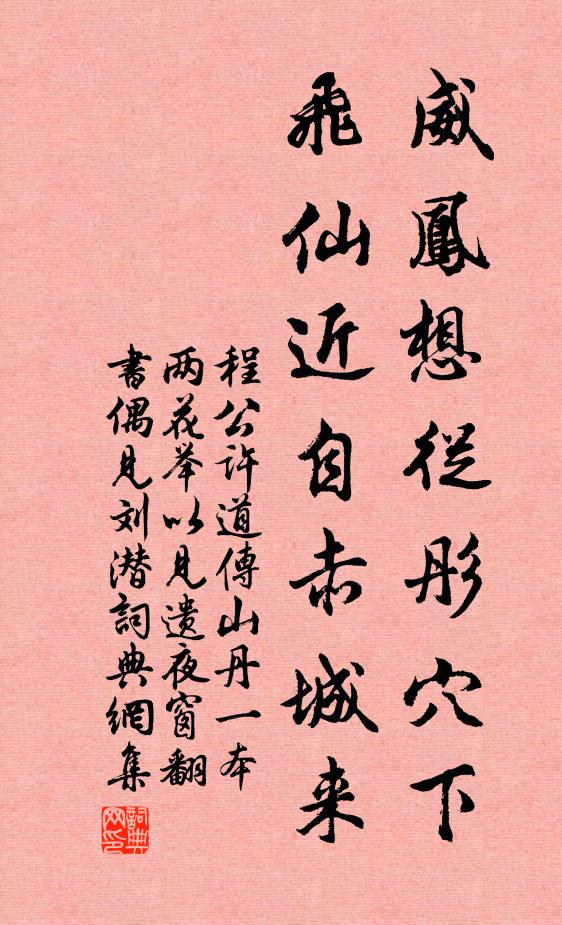 威鳳想從彤穴下
飛仙近自赤城来
程公许道傳山丹一本
两花举以見遗夜窗翻
書偶見刘潜詞典網集
詞典网印